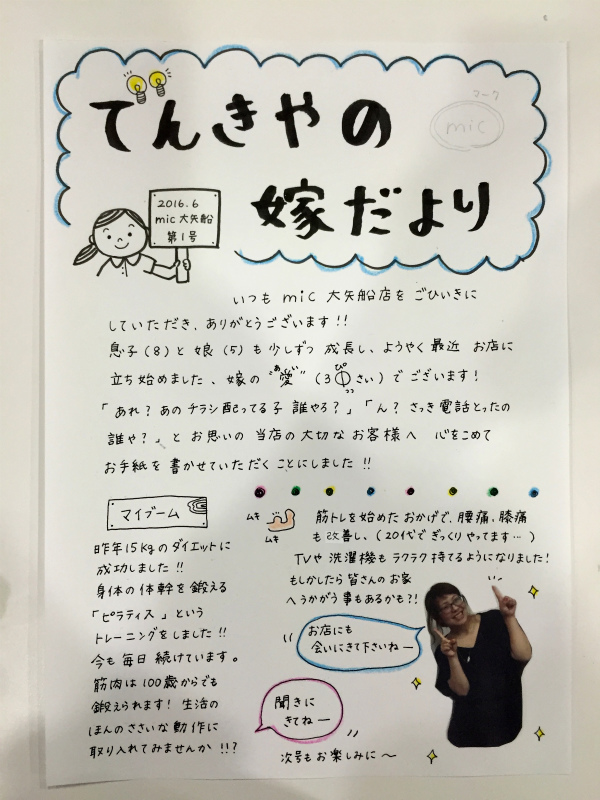 てんきやの
マーク
mic
嫁だより
2016.6
mic大矢船
第1号
いつも mic 大矢船店を ごひいきに
していただき、ありがとうございます!!
息子(8)と 娘(5)も 少しずつ 成長し、ようやく 最近 お店に
立ち始めました、嫁の "愛" (3 さい)で ございます!
あい
ぴ
「あれ? あの チラシ 配ってる子 誰やろ?」「ん? さっき 電話とったの
誰や?」と お思いの 当店の 大切な お客様へ 心をこめて
お手紙を 書かせていただく ことにしました !!
マイブーム
昨年 15kg の ダイエットに
成功しました !!
身体の 体幹を 鍛える
「ピラティス」という
トレーニングを しました !!
今も 毎日 続けています。
筋肉は 100歳からでも
鍛えられます! 生活の
ほんの ささいな 動作に
取り入れてみませんか !!?
ムキ
ムキ
筋トレを 始めた おかげで、腰痛、膝痛
も 改善し、(20代で ぎっくり やってます…)
TVや 洗濯機も ラクラク 持てるようになりました!
もしかしたら 皆さんの お家
へ うかがう 事もあるかも?!
お店にも
会いにきて下さいねー
聞きに
きてねー
次号も お楽しみに〜